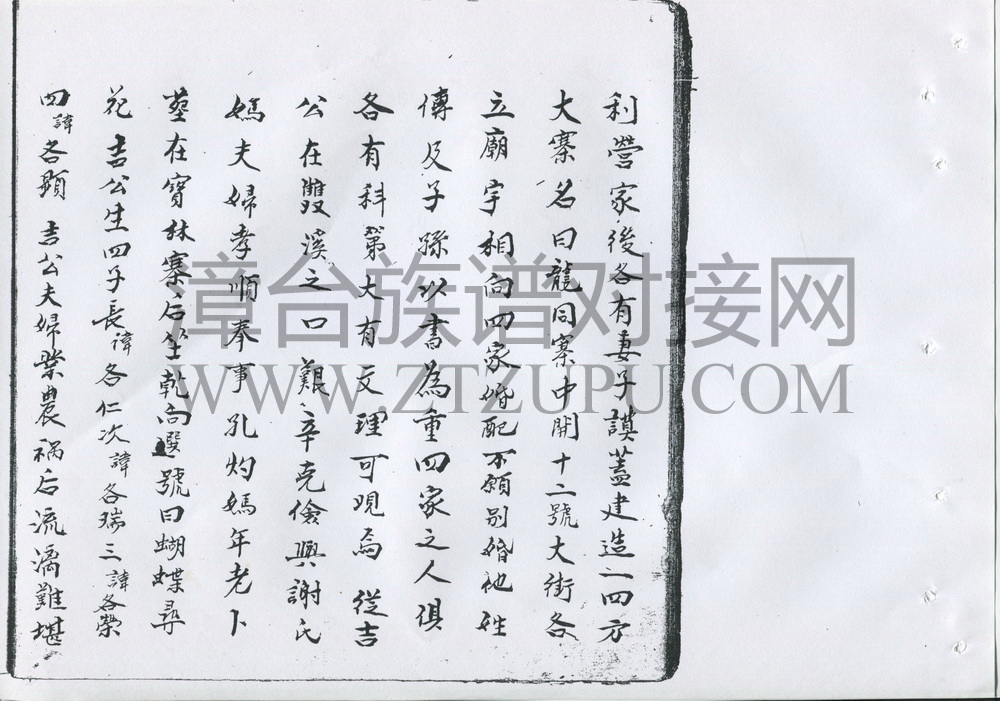 利營家後各有妻子謨蓋建造一四方
大寨名曰龍同寨中開十二號大街各
立廟宇相向四家婚配不願別婚他姓
傳及子孫以書為重四家之人俱
各有科第大有文理可观焉 從吉
公在雙溪之口 艱辛克儉興謝氏
媽夫婦孝順奉事孔灼媽年老卜
塟在寶林寨后坐乾向巽號曰蝴蝶尋
花 吉公生四子長諱各仁次諱各瑞三諱各榮
四諱各顯 吉公夫婦業農禍后流漓難堪
漳台族谱对接网
WWW.ZTZUPU.COM